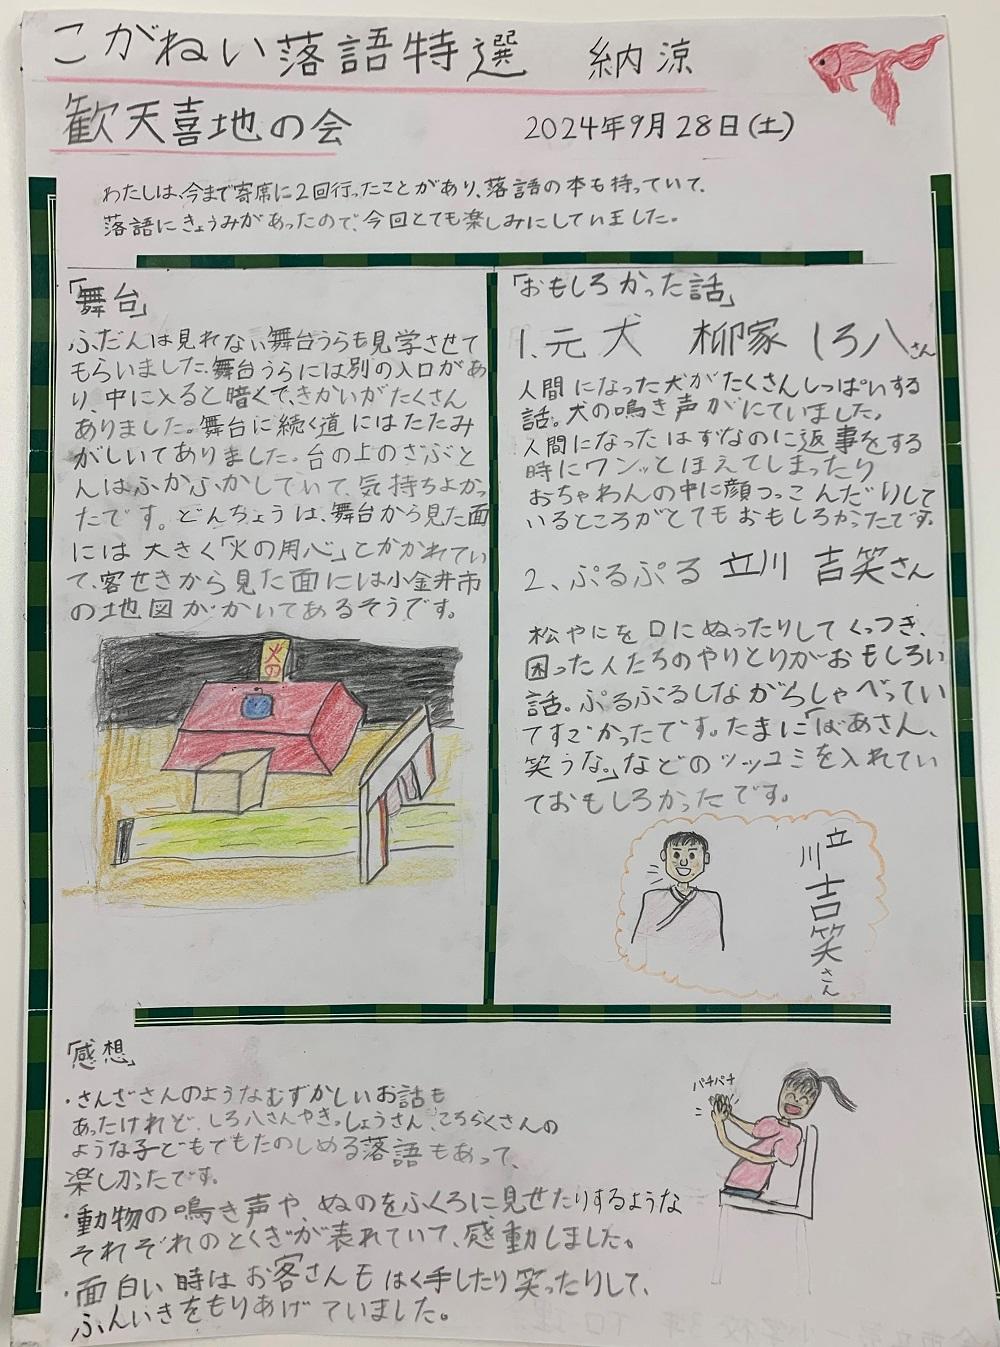 こがねい落語特選　納涼
歓天喜地の会　2024年9月28日(土)
わたしは、今まで寄席に2回行ったことがあり、落語の本も持っていて、
落語にきょうみがあったので、今回とても楽しみにしていました。
「舞台」
ふだんは見れない舞台うらも見学させて
もらいました。舞台うらには別の入口があ
り、中に入ると暗くて、きかいがたくさん
ありました。舞台に続く道にはたたみ
がしいてありました。台の上のざぶと
んはふかふかしていて、気持ちよかっ
たです。どんちょうは、舞台から見た面
には大きく「火の用心」とかかれてい
て、客せきから見た面には小金井市
の地図がかいてあるそうです。
火の
「おもしろかった話」
1.元犬　柳家しろ八さん
人間になった犬がたくさんしっぱいする
話。犬の鳴き声がにていました。
人間になったはずなのに返事をする
時にワンッとほえてしまったり
おちゃわんの中に顔つっこんだりして
いるところがとてもおもしろかったです。
2、ぷるぷる　立川　吉笑さん
松やにを口にぬったりしてくっつき、
困った人たちのやりとりがおもしろい
話。ぷるぷるしながらしゃべってい
てすごかったです。たまに「ばあさん、
笑うな。」などのツッコミを入れてい
ておもしろかったです。
立川吉笑さん
「感想」
・さんざさんのようなむずかしいお話も
あったけれど、しろ八さんやきっしょうさん、ころらくさんの
ような子どもでもたのしめる落語もあって、
楽しかったです。
・動物の鳴き声や、ぬのをふくろに見せたりするような
それぞれのとくぎが表れていて、感動しました。
・面白い時はお客さんもはく手したり笑ったりして、
ふんいきをもりあげていました。
パチパチ